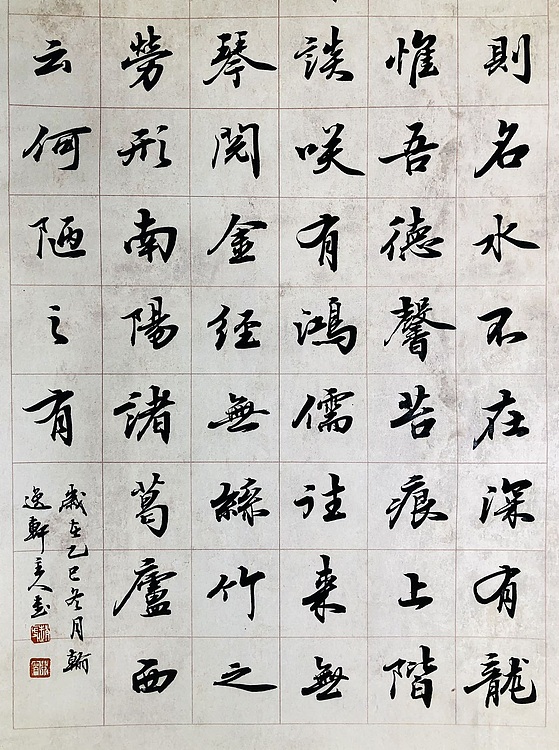 則名水不在深有龍
惟吾德馨苔痕上階
談咲有鴻儒往来無
琴閱金經無絲竹之
勞形南陽諸葛廬西
云何陋之有
歲在乙巳冬月翰
逸軒主人書